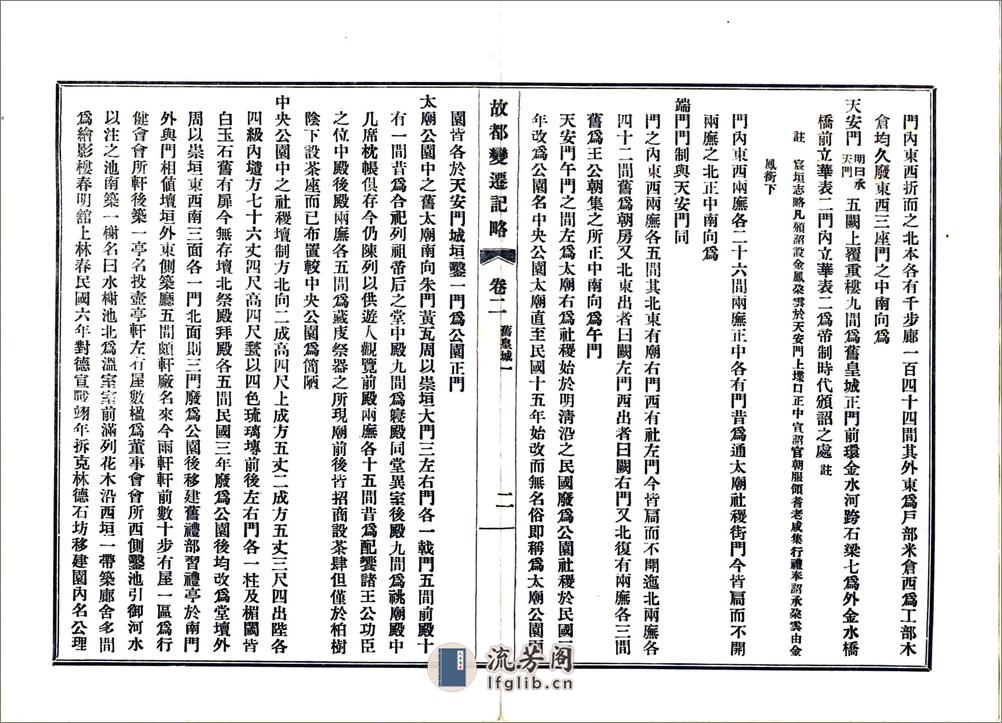 門內東西折而之北本各有千步廊一百四十四間其外東爲戶部米倉西爲工部木
倉均久廢東西三座門之中南向爲
天安門明曰承天門五闕上覆重樓九間爲舊皇城正門前環金水河跨石梁七爲外金水橋
橋前立華表二門內立華表二爲帝制時代頒詔之處註
註 宸垣志略凡頒詔設金鳳朶雲於天安門上堞口正中宣詔官朝服領耆老咸集行禮奉詔承朶雲由金
鳳銜下
門內東西兩廡各二十六間兩廡正中各有門昔爲通太廟社稷街門今皆扃而不開
兩廡之北正中南向爲
端門門制與天安門同
門之內東西兩廡各五間其北東有廟右門西有社左門今皆扃而不開迤北兩廡各
四十二間舊爲朝房又北東出者曰闕左門西出者曰闕右門又北復有兩廡各三間
舊爲王公朝集之所正中南向爲午門
天安門午門之間左爲太廟右爲社稷始於明淸沿之民國廢爲公園社稷於民國三
年改爲公園名中央公園太廟直至民國十五年始改而無名俗即稱爲太廟公園兩
故都變遷記略 卷二 舊皇城一 二
園皆各於天安門城垣鑿一門爲公園正門
太廟公園中之舊太廟南向朱門黃瓦周以崇垣大門三左右門各一戟門五間前殿十
有一間昔爲合祀列祖帝后之堂中殿九間爲寢殿同堂異室後殿九間爲祧廟殿中
几席枕帳俱存今仍陳列以供遊人觀覽前殿兩廡各十五間昔爲配饗諸王公功臣
之位中殿後殿兩廡各五間爲藏庋祭器之所現廟前後皆招商設茶肆但僅於柏樹
陰下設茶座而已布置較中央公園爲簡陋
中央公園中之社稷壇制方北向二成高四尺上成方五丈二成方五丈三尺四出陛各
四級內壝方七十六丈四尺高四尺甃以四色琉璃塼前後左右門各一柱及楣閾皆
白玉石舊有扉今無存壇北祭殿拜殿各五間民國三年廢爲公園後均改爲堂壇外
周以崇垣東西南三面各一門北面則三門廢爲公園後移建舊禮部習禮亭於南門
外與門相値壇垣外東側築廳五間頗軒廠名來今雨軒軒前數十步有屋一區爲行
健會會所軒後築一亭名投壺亭軒左有屋數楹爲董事會會所西側鑿池引御河水
以注之池南築一榭名曰水榭池北爲溫室室前滿列花木沿西垣一帶築廊舍多間
爲繪影樓春明舘上林春民國六年對德宣戰翊年拆克林德石坊移建園內名公理
流芳阁
lfglib.cn